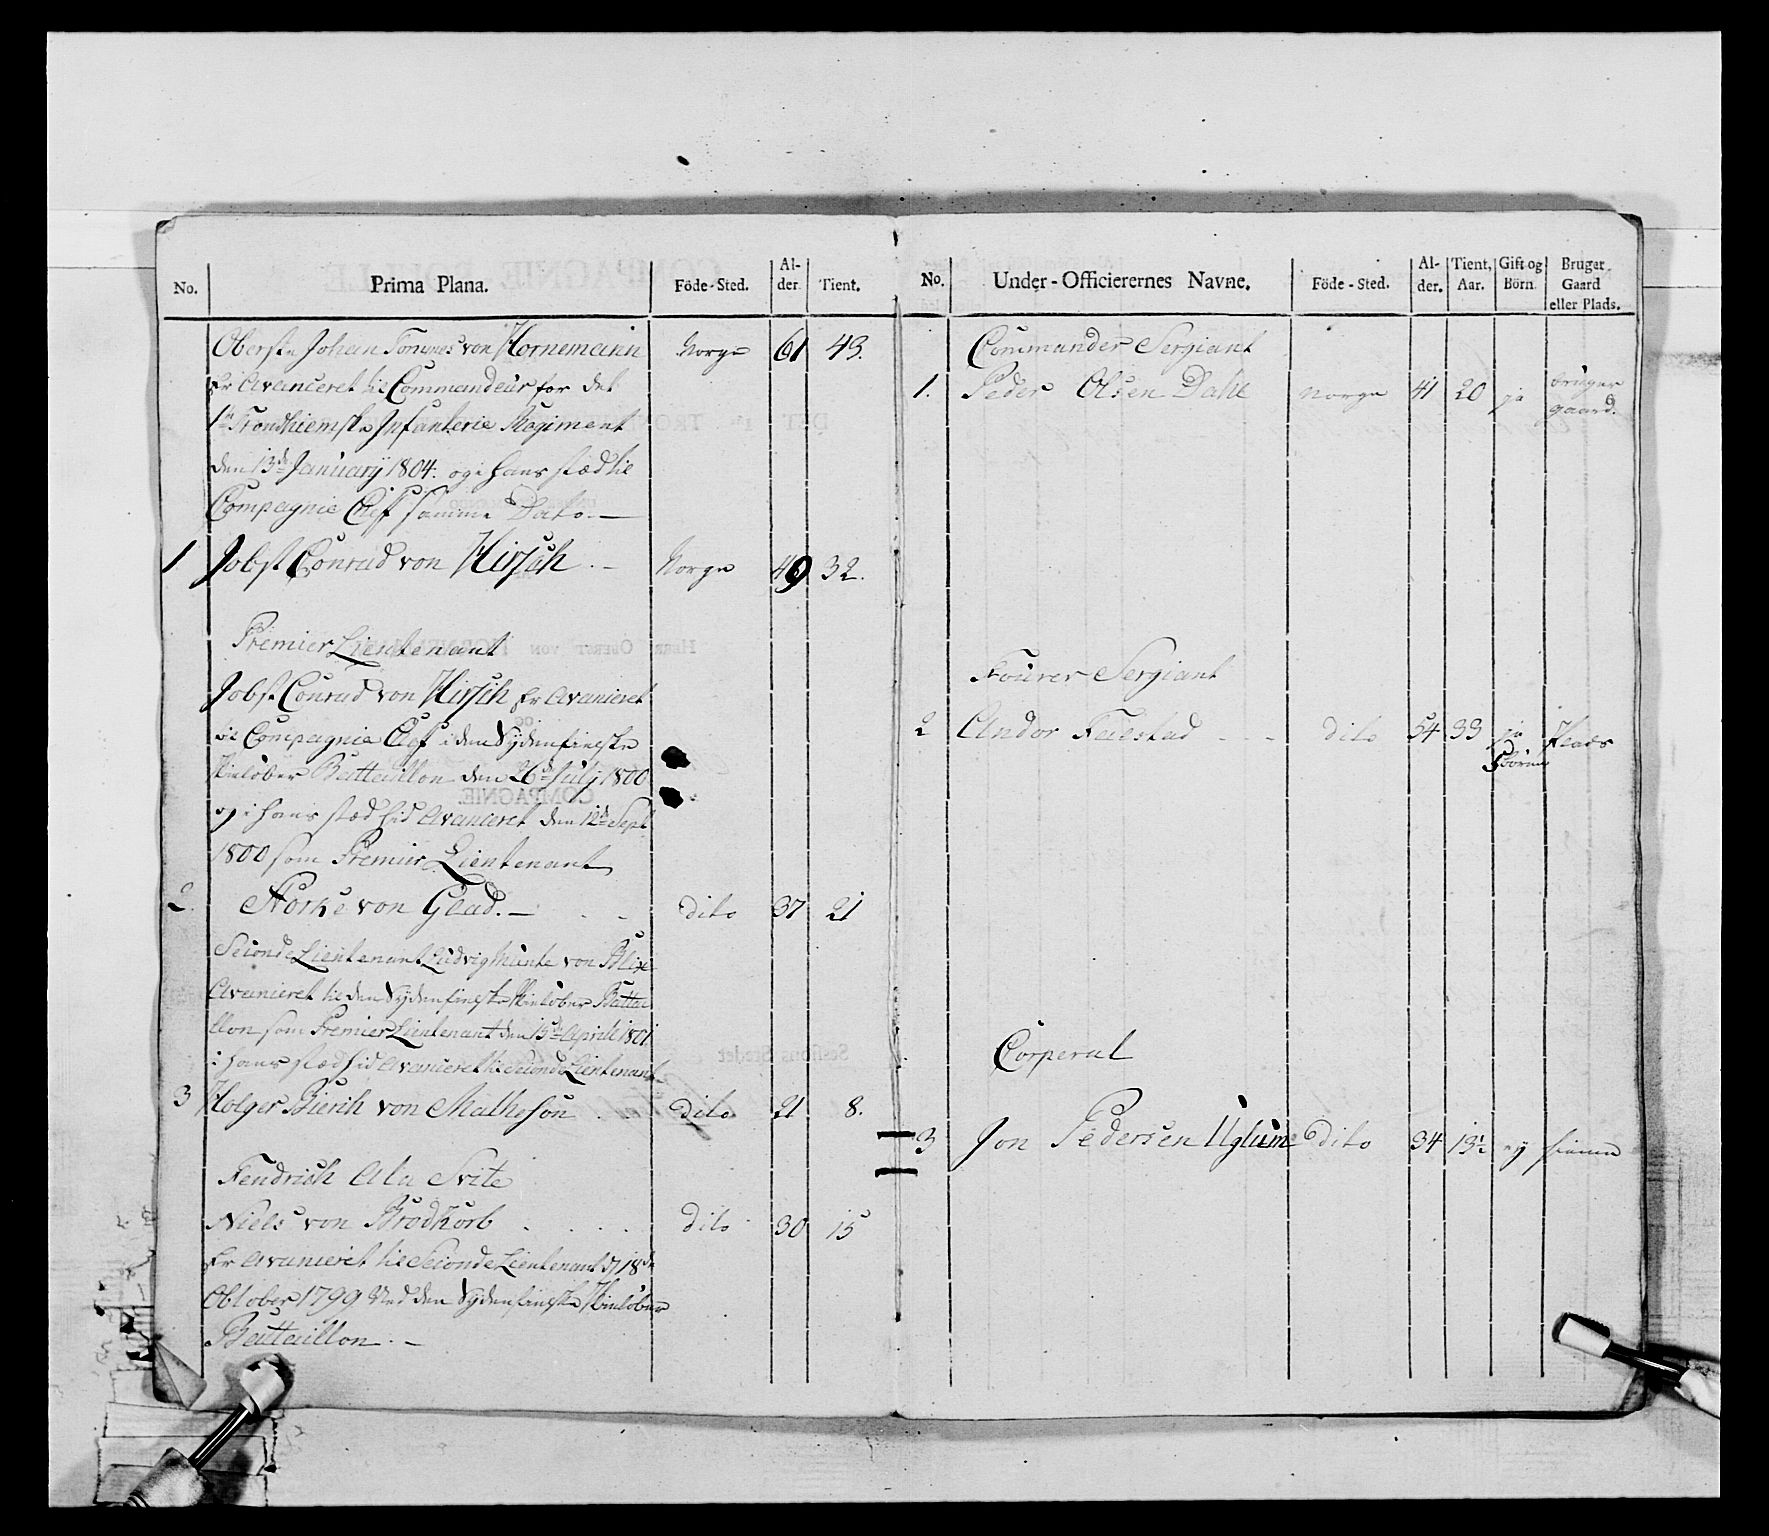 No. Prima Plana. Föde-Sted. Al-der. Tient.
Oberste Johan Tønnes von Hornemann Norge 61 43.
Er Avanceret til Commandeur for det
1te Trondhiemske Infanterie Regiment
den 13de January 1804. og i hans stæd til
Compagnie Chef samme Dato. —
1 Jobst Conrad von Hirsch . — Norge 49 32.
Premier Lieutenant
Jobst Conrad von Hirsch Er Avanceret
til Compagnie Chef i den Sydenfieldske
Skieløber Battaillon den 26de July 1800
og i hans stæd hid Avanceret den 12te Sept
1800 som Premier Lieutenant
2. von Glad. — dito 37 21
Seconde Lieutenant Ludvig Munte von
Avanceret til den Sydenfielske Skieløber Battai
llon som Premier Lieutenant den 15de Aprili 1801.
i hans stæd hid Avanceret til Seconde Lieutenant
3 Holger von Matheson . dito 21 8.
Fendrich Ala Svite
Niels von Brodkorb . . . . dito 30 15
Er Avanceret til Seconde Lieutenant 18de
October 1799 Ved den Sydenfielske Skieløber
Battaillon . —
No. Under-Officierernes Navne. Föde-Sted. Al-der. Tient, Aar. Gift og Börn. Bruger Gaard eller Plads.
Commander Sergiant
1. Peder Olsen Dahl Norge 41 20 ja bruger
gaard.
Fourer Sergiant
2 Andor Faestad - - - dito 54 33 ja Plads
5 börn
Corperal
3 Jon Pedersen Uglum dito 34 13½